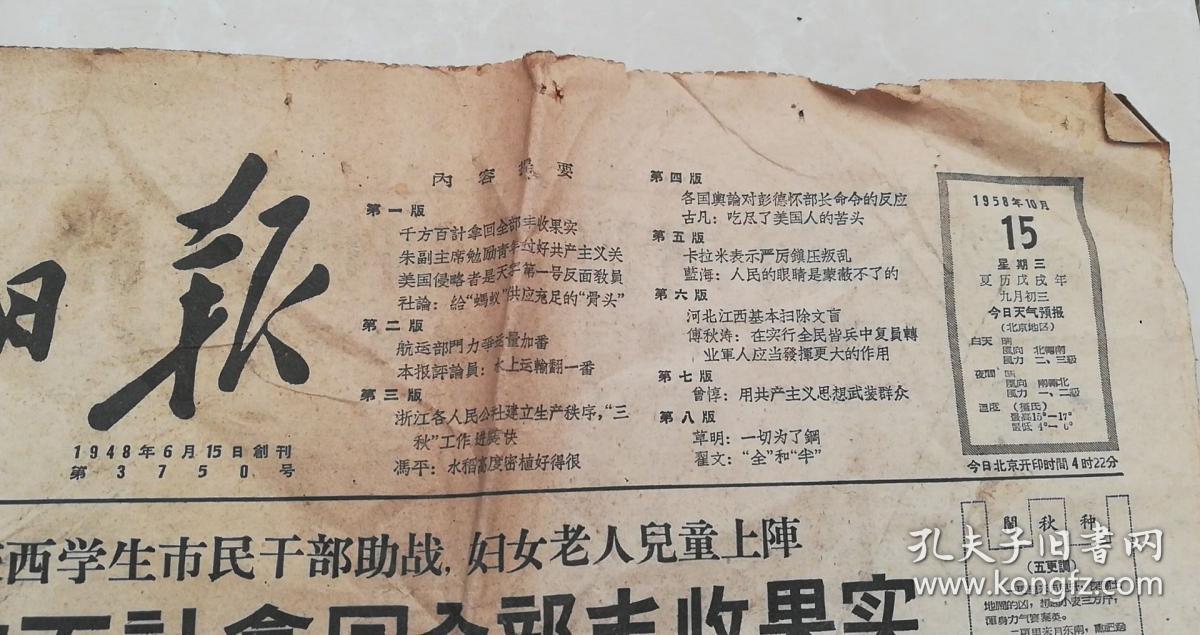 日报
1948年6月15日創刊
第3750号
內容提要
第一版
千方百計拿回全部丰收果实
朱副主席勉励青年过好共产主义关
美国侵略者是天字第一号反面教員
社論：給“螞蚁”供应充足的“骨头”
第二版
航运部門力爭运量加番
本报評論員：水上运輸翻一番
第三版
浙江各人民公社建立生产秩序，“三
秋”工作进展快
馮平：水稻高度密植好得很
第四版
各国輿論对彭德怀部长命令的反应
古凡：吃尽了美国人的苦头
第五版
卡拉米表示严厉鎮压叛乱
藍海：人民的眼睛是蒙蔽不了的
第六版
河北江西基本扫除文盲
傅秋涛：在实行全民皆兵中复員轉
业軍人应当發揮更大的作用
第七版
曾惇：用共产主义思想武装群众
第八版
草明：一切为了鋼
翟文：“全”和“半”
1958年10月
15
星期三
夏历戊戌年
九月初三
今日天气預报
(北京地区)
白天 晴
風向 北轉南
風力 二、三級
夜間 晴
風向 南轉北
風力 一、二級
温度 (摄氏)
最高15°—17°
最低 4°—6°
今日北京开印时間4时22分
西学生市民干部助战，妇女老人兒童上陣
百計拿回全部丰收果实
鬧秋种
(五更調)
孔夫子旧书网
www.kongfz.com